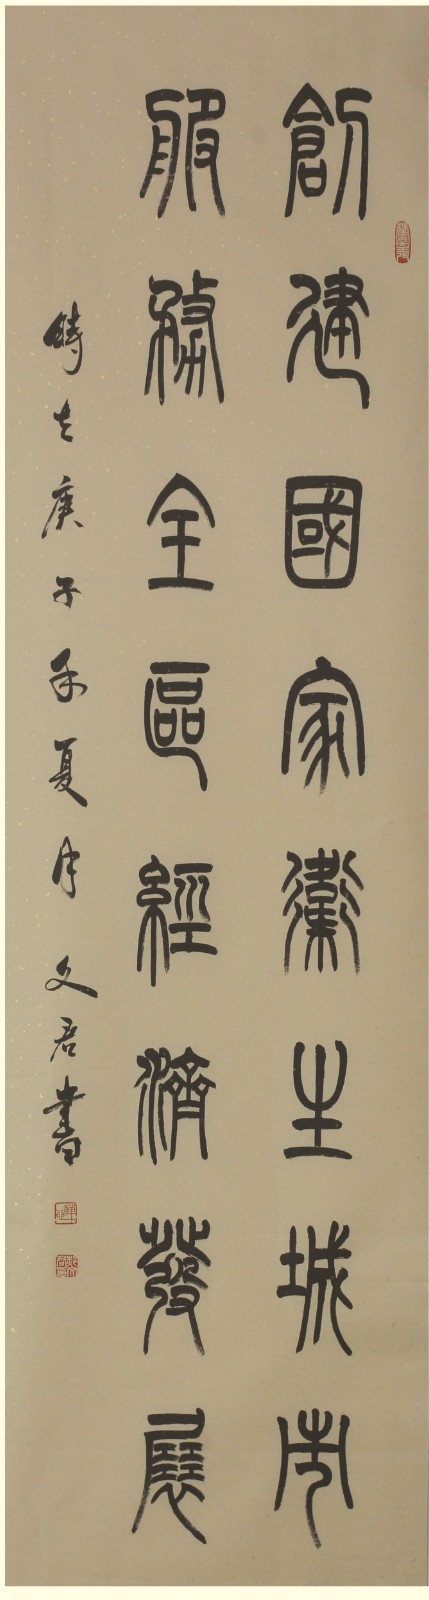 創建國家衛生城市
服務全區經濟發展
時在庚子年夏月文君書